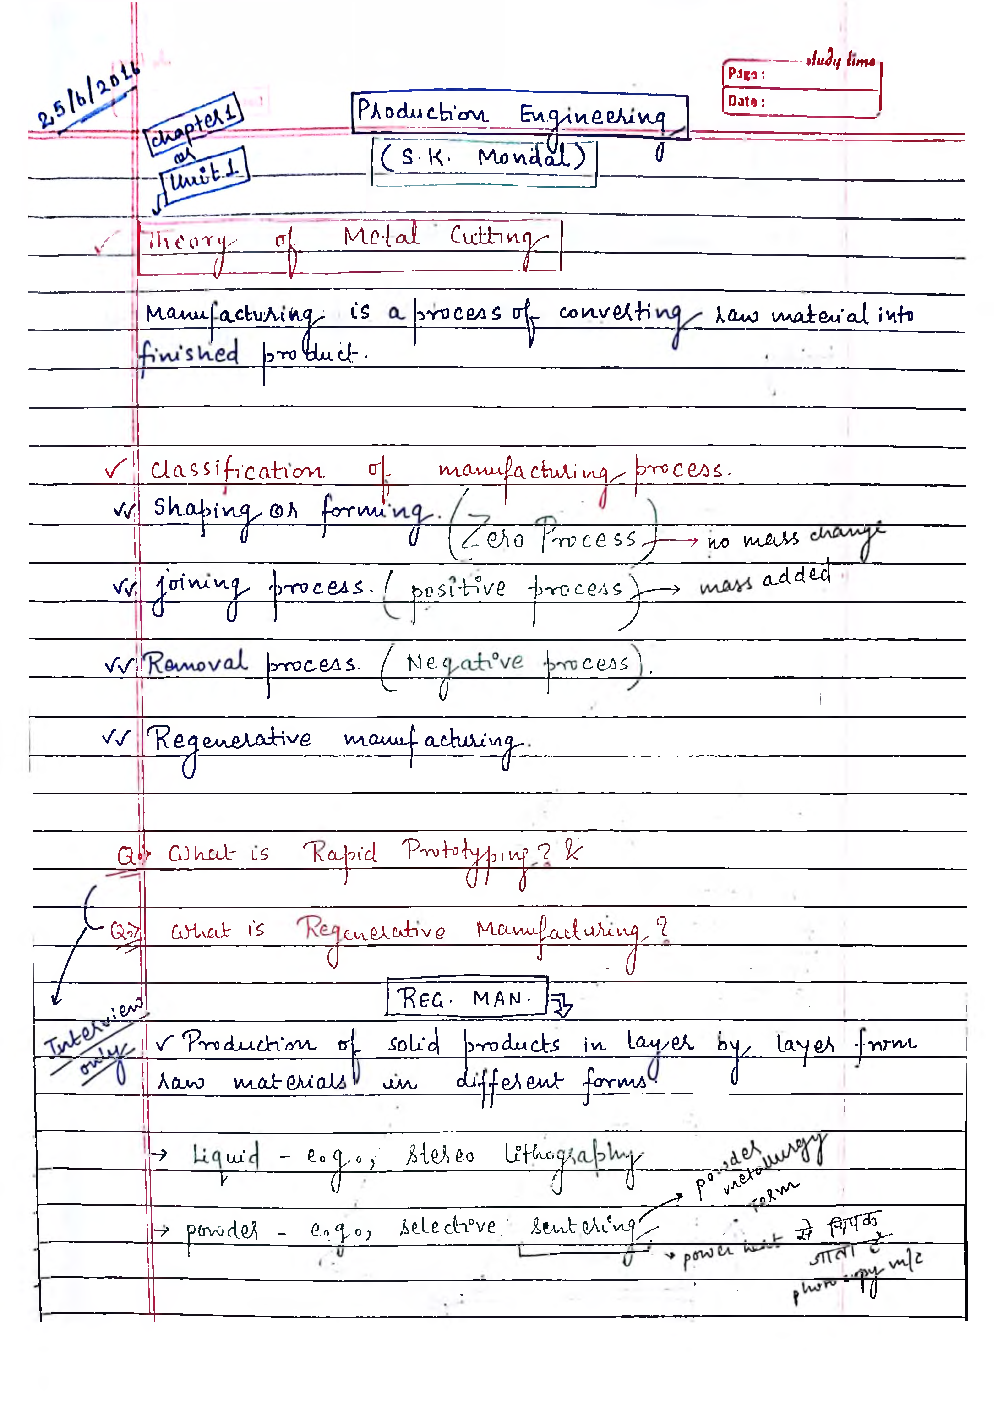 25/6/2016
study time
Page:
Date:
Chapter 1
or
Unit.1
Production Engineering
(S.K. Mondal)
Theory of Metal Cutting
Manufacturing is a process of converting raw material into
finished product.
Classification of manufacturing process.
Shaping or forming. (Zero Process) → no mass change
joining process. (positive process) → mass added.
Removal process. (Negative process).
Regenerative manufacturing.
Q→ What is Rapid Prototyping? &
Q→ What is Regenerative Manufacturing?
Interview only
REG. MAN.
✓ Production of solid products in layer by layer from
raw materials in different forms.
→ Liquid - e.g., stereo lithography
→ powder - e.g., selective sentering
→ powder metallurgy term
→ power heat से चिपक जाता है
photocopy m/c